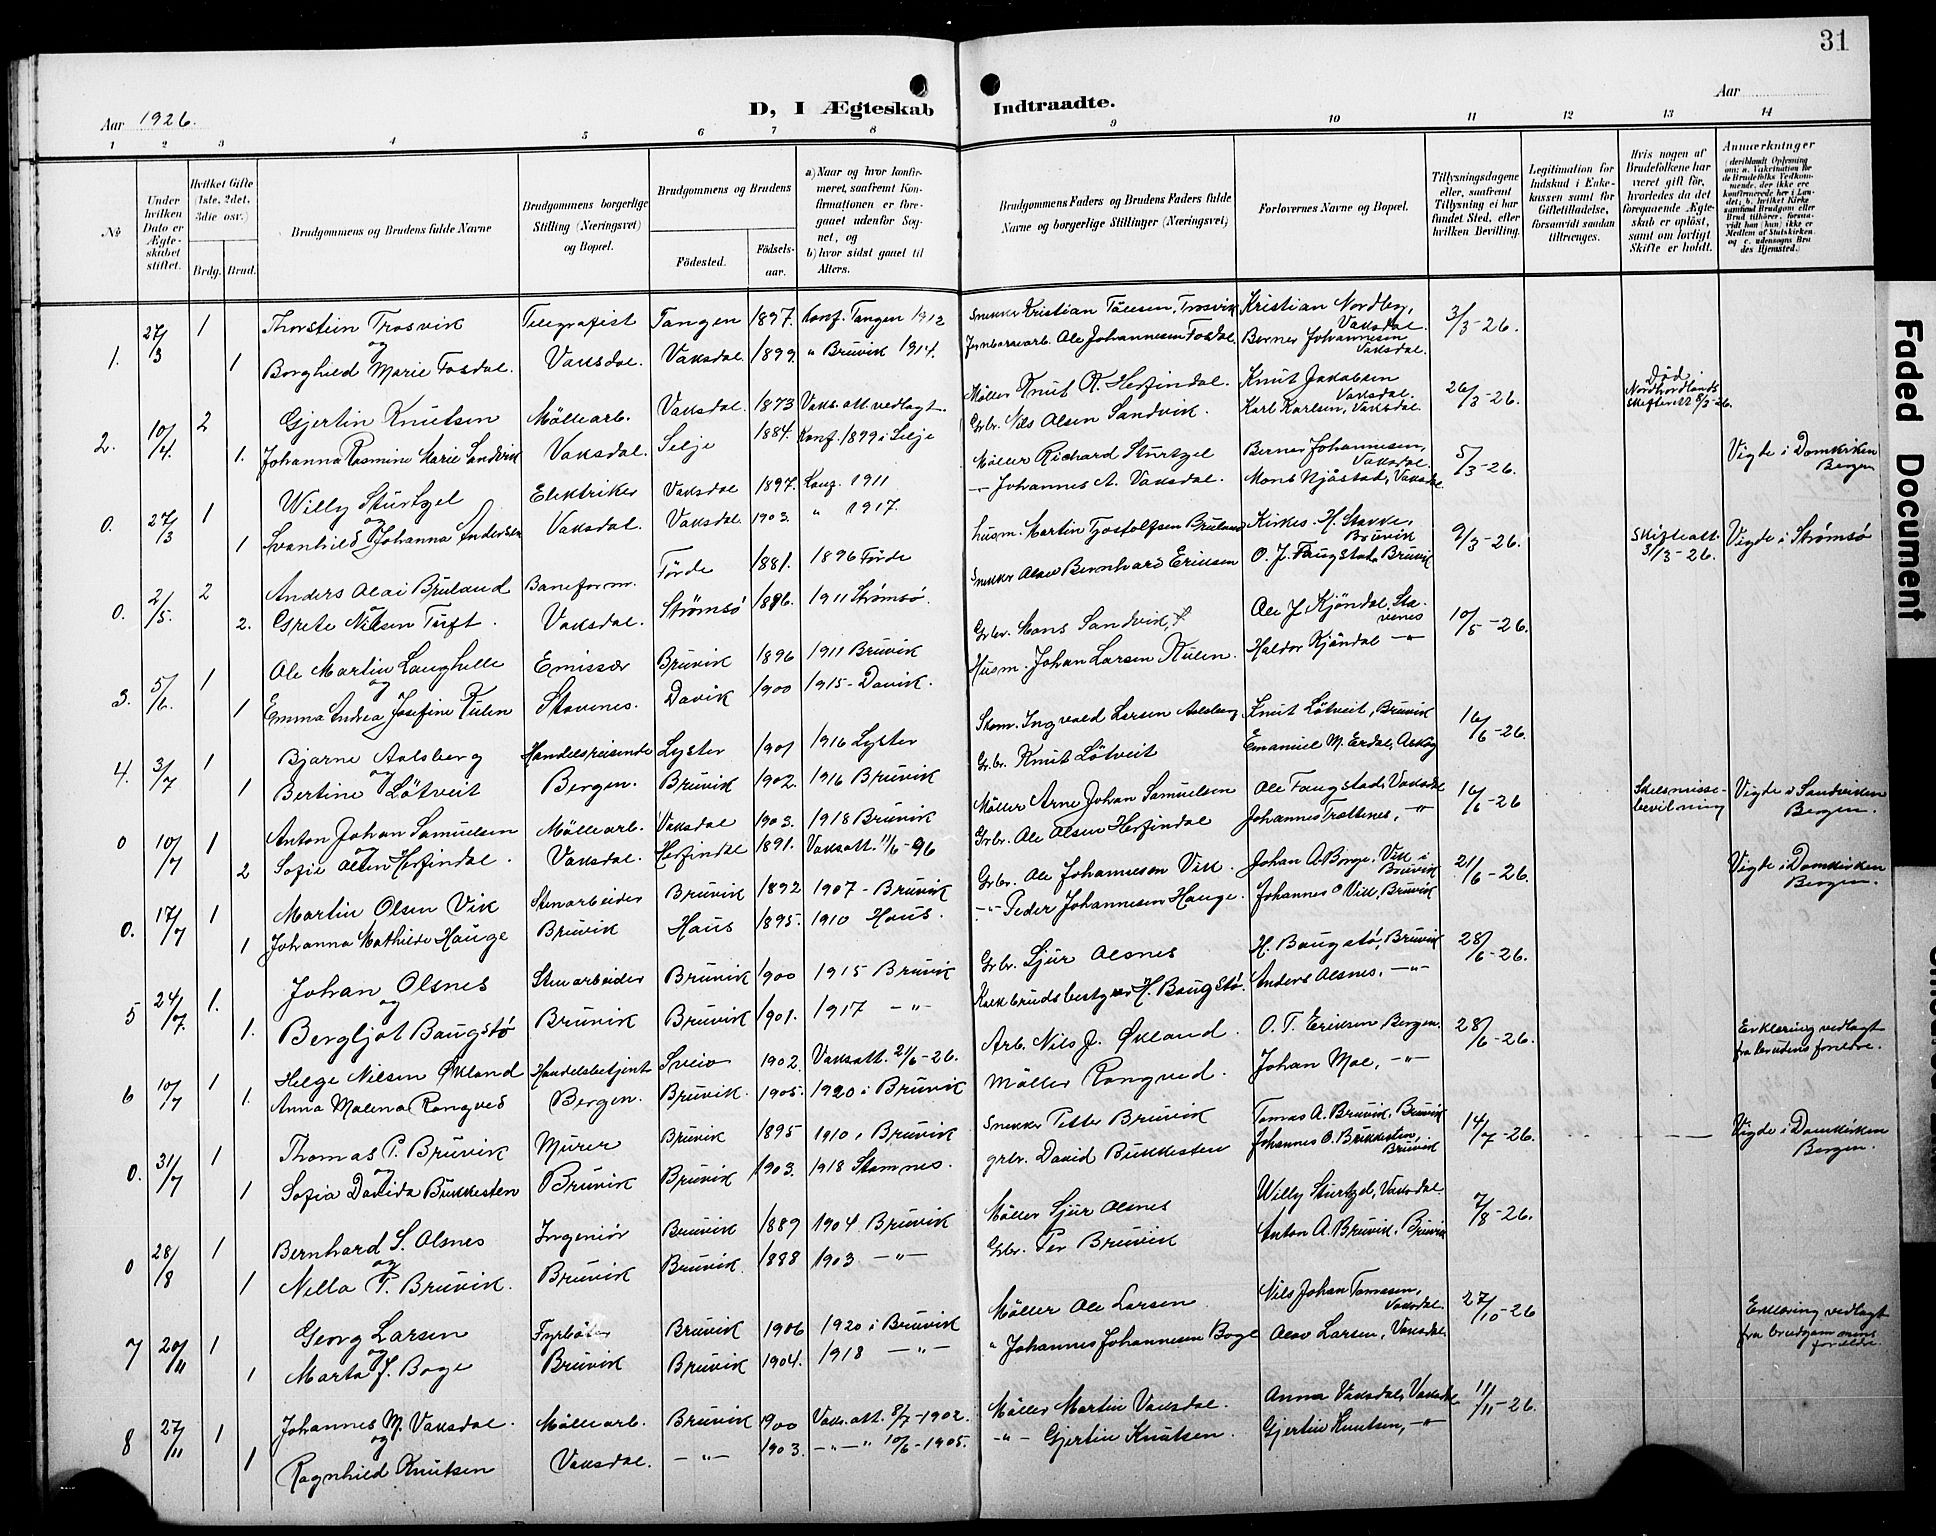 31
Aar 1926.
D, I Ægteskab Indtraadte.
Aar
1 2 3 4 5 6 7 8 9 10 11 12 13 14
No
Under hvilken Dato er Ægteskabet stiftet.
Hvilket Gifte (1ste, 2det, 3die osv.)
Brdg. Brud.
Brudgommens og Brudens fulde Navne
Brudgommens borgerlige Stilling (Næringsvei) og Bopæl.
Brudgommens og Brudens
Födested. Födselsaar.
a) Naar og hvor konfirmeret, saafremt Konfirmationen er foregaaet udenfor Sognet, og
b) hvor sidst gaaet til Alters.
Brudgommens Faders og Brudens Faders fulde Navne og borgerlige Stillinger (Næringsvei)
Forlovernes Navne og Bopæl.
Tillysningsdagene eller, saafremt Tillysning ei har fundet Sted, efter hvilken Bevilling.
Legitimation for Indskud i Enkekassen samt for Giftetilladelse, forsaavidt saadan tiltrænges.
Hvis nogen af Brudefolkene har været gift för, hvorledes da det foregaaende Ægteskab er oplöst, samt om lovligt Skifte er holdt.
Anmærkninger (deriblandt Oplysning om: a. Vakcination for de Brudefolks Vedkommende, der ikke ere konfirmerede her i Landet; b. hvilket Kirkesamfund Brudgom eller Brud tilhörer, forsaavidt han (hun) ikke er Medlem af Statskirken og c. udensogns Brudes Hjemsted.)
1. 27/3 1 Thorstein Trosvik Telegrafist Tangen 1897. Konf. Tangen 1912 Snekker Kristian Töesen Trosvik Kristian Nordberg, Vaksdal. 3/3-26.
og
1 Borghild Marie Fosdal. Vaksdal. Vaksdal. 1899 " Bruvik 1914. Jernbanearb. Ole Johannesen Fosdal. Berner Johannesen Vaksdal.
2. 10/4. 2 Gjertin Knutsen Möllearb. Vaksdal. 1873 Vaks. att vedlagt. Möller Knut K. Herfindal. Knut Jakobsen Vaksdal. 26/3-26. Död. Nordhordlands skifterett 8/3-26.
1. Johanna Rasmine Marie Sandvik Vaksdal. Selje 1884. Konf. 1899 i Selje Grbr. Nils Olsen Sandvik. Karl Karlsen, Vaksdal.
0. 27/3 1 Willy Sturtzel Elektriker Vaksdal 1897. Konf. 1911 Möller Richard Sturtzel Berner Johannesen, Vaksdal 5/3-26. Vigde i Domkirken Bergen
og
1 Svanhild Johanna Andersen Vaksdal. Vaksdal. 1903. " 1917. — Johannes A. Vaksdal. Mons Njåstad, Vaksdal
0. 2/5. 2 Anders Olai Bruland Baneform. Förde 1881. 1896 Förde husm. Martin Tjostolfsen Bruland Kirkes. H. Stavke, Bruvik 9/3-26. Skifteatt. 3/3-26. Vigde i Strømsö
og
2. Grete Nilsen Tuft. Vaksdal. Strømsö 1886. 1911 Strømsö. Snekker Olav Bernhard Eriksen O. J. Faugstad, Bruvik
3. 5/6. 1 Ole Martin Langhelle Emissær Bruvik 1896 1911 Bruvik Grbr. Mons Sandvik, Ole J. Kjöndal, Stavenes 10/5-26.
og
1 Emma Andrea Josefine Kulen Stavenes. Davik 1900 1915 - Davik. Husm. Johan Larsen Kulen. Haldor Kjöndal —"—
4. 3/7 1 Bjarne Aalsberg Handelsreisende Lyster 1901 1916 Lyster Skom. Ingvald Larsen Aalsberg Knut Lötveit, Bruvik 16/6-26.
og
1 Bertine Lötveit Bergen. Bruvik 1902. 1916 Bruvik Gr.br. Knut Lötveit Emanuel M. Erdal, Askøy
0 10/7 1 Anton Johan Samuelsen Möllearb. Vaksdal 1903. 1918 Bruvik Möller Arne Johan Samuelsen Ole Faugstad, Vaksdal 16/6-26 Skilsmissebevilning Vigde i Sandviken Bergen.
og
2 Sofie Olsen Herfindal. Vaksdal. Herfindal 1891. Vaksatt. 11/6-96 Grbr. Ole Olsen Herfindal Johannes Trættenes, —"—
0. 17/7 1 Martin Olsen Vik Stenarbeider Bruvik 1892 1907 - Bruvik Grbr. Ole Johannesen Vik Johan A. Borge, Vik i Bruvik 21/6-26. Vigde i Domkirken Bergen.
1 Johanna Mathilde Hauge Bruvik Haus 1895. 1910 Haus. —"— Peder Johannesen Hauge. Johannes O Vik, Bruvik
5 24/7. 1. Johan Olsnes Stenarbeider Bruvik 1900 1915 Bruvik Grbr. Sjur Olsnes H. Baugstø, Bruvik 28/6-26.
og
1. Bergljot Baugstø Bruvik Bruvik 1901. 1917 —"— Kalkbrudsbestyrer H. Baugstø. Anders Olsnes. —"—
6 10/7 1 Helge Nilsen Økland Handelsbetjent Sveio 1902. Vaksatt. 21/6-26. Arb. Nils J. Økland. O. T. Eriksen, Bergen. 28/6-26. Erklæring vedlagt fra brudens foreldre.
1. Anna Malena Rongved Bergen. Bruvik. 1905. 1920 i Bruvik Möller Rongved. Johan Moe, —"—
0. 31/7 1 Thomas P. Bruvik Murer Bruvik 1895 1910 i Bruvik Snekker Petter Bruvik Tomas A. Bruvik, Bruvik 14/7-26. Vigde i Domkirken Bergen.
og
1 Sofia Davida Bukkesten Bruvik Bruvik 1903. 1918 Stamnes. grbr. David Bukkesten Johannes O. Bukkesten, Bruvik
0 28/8 1 Bernhard S. Olsnes Ingeniör Bruvik 1889 1904 Bruvik Möller Sjur Olsnes Willy Sturtzel, Vaksdal. 7/8-26.
og
1 Nella P. Bruvik. Bruvik Bruvik. 1888 1903 —"— Grbr. Per Bruvik Anton A. Bruvik, Bruvik
7 20/11 1 Georg Larsen Fyrböter Bruvik 1906 1920 i Bruvik Möller Ole Larsen Nils Johan Tomasen, Vaksdal 27/10-26 Erklæring vedlagt fra brudgommens foreldre.
og
1 Marta J. Boge Bruvik Bruvik 1904. 1918 —"— " Johannes Johannesen Boge Olav Larsen, Vaksdal
8 27/11 1 Johannes M. Vaksdal. Möllearb. Bruvik 1900 Vaks. att. 8/7-1902. Möller Martin Vaksdal. Anna Vaksdal, Vaksdal 11/11-26.
og
1 Ragnhild Knutsen Vaksdal. —"— 1903. —"—" 10/6-1905. —"— Gjertin Knutsen. Gjertin Knutsen, —"—
Faded Document